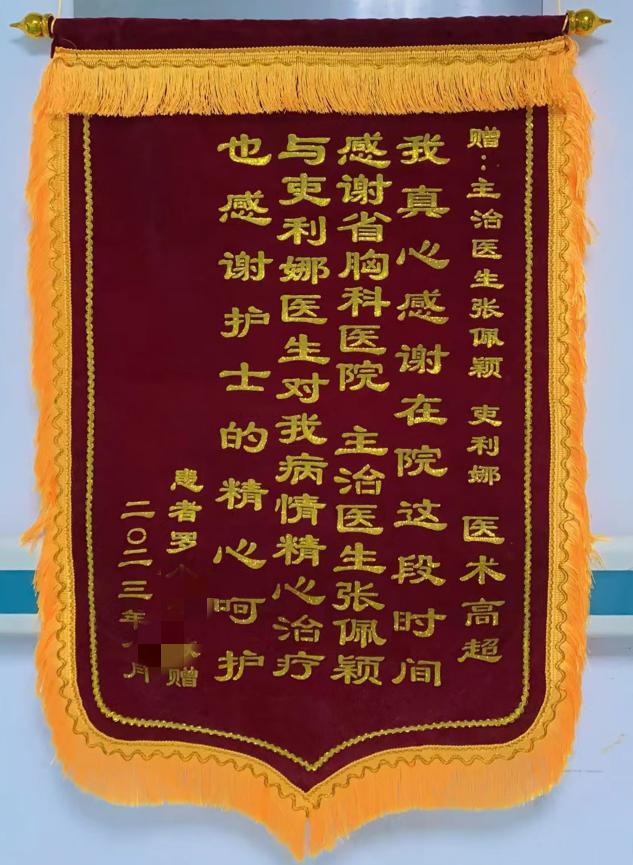 赠：主治医生张佩颖 吏利娜 医术高超
我真心感谢在院这段时间
感谢省胸科医院 主治医生张佩颖
与吏利娜医生对我病情精心治疗
也感谢护士的精心呵护
患者罗 赠
二〇二三年 月